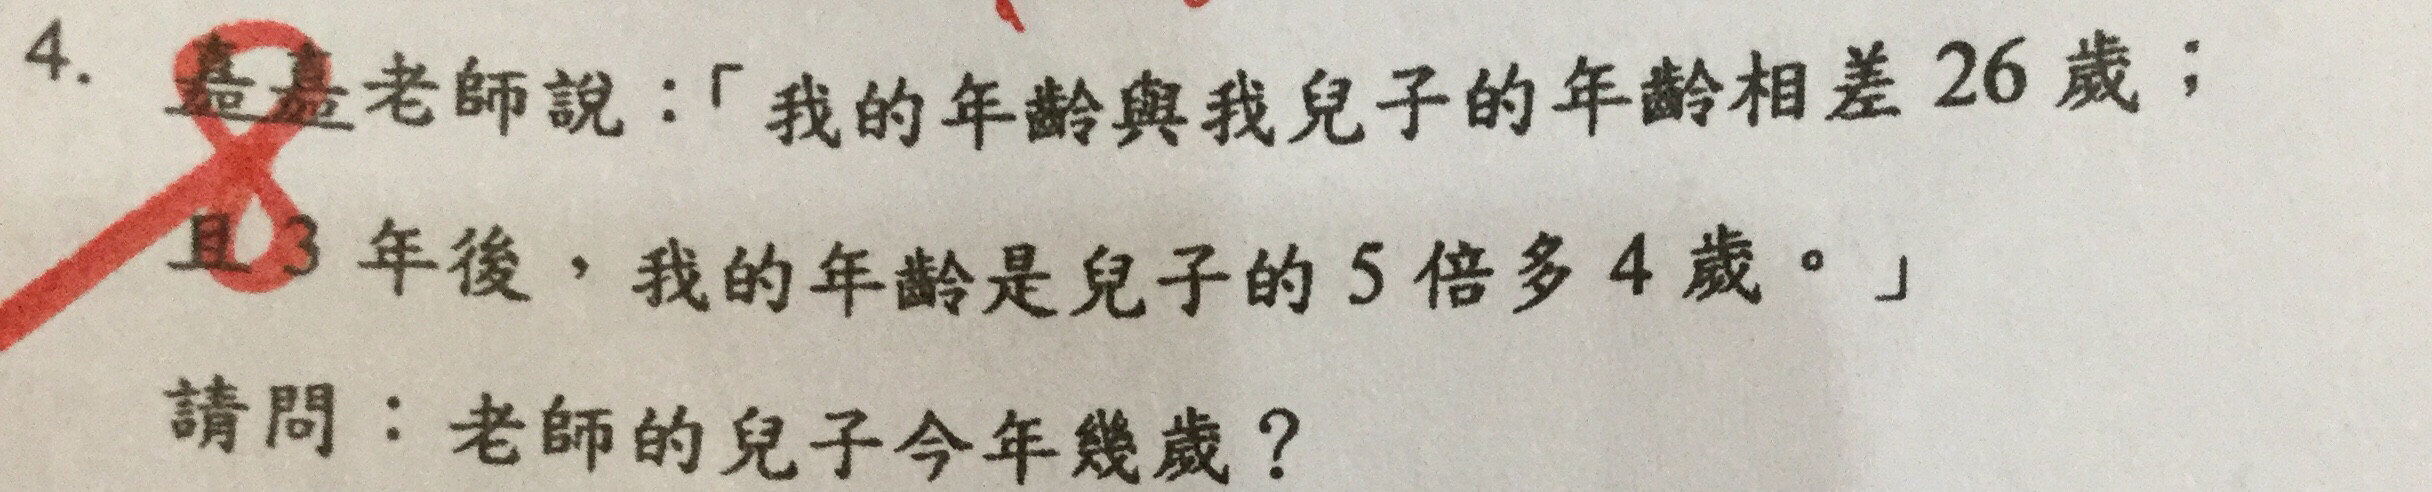 4. 嘉嘉老師說：「我的年齡與我兒子的年齡相差 26 歲；
且 3 年後，我的年齡是兒子的 5 倍多 4 歲。」
請問：老師的兒子今年幾歲？